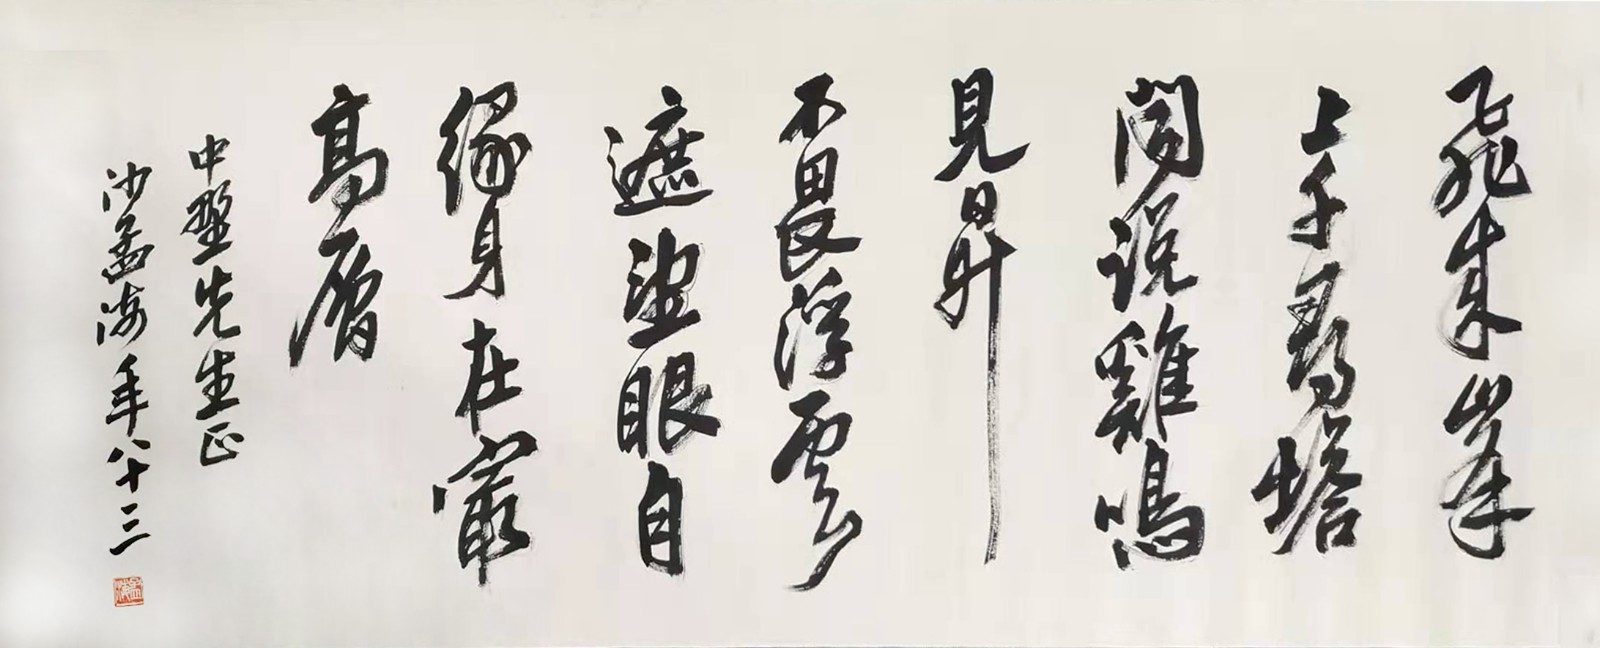 飛来峯
上千尋塔
聞說雞鳴
見日昇
不畏浮雲
遮望眼自
緣身在寂
高層
中埜先生正
沙孟海年八十三